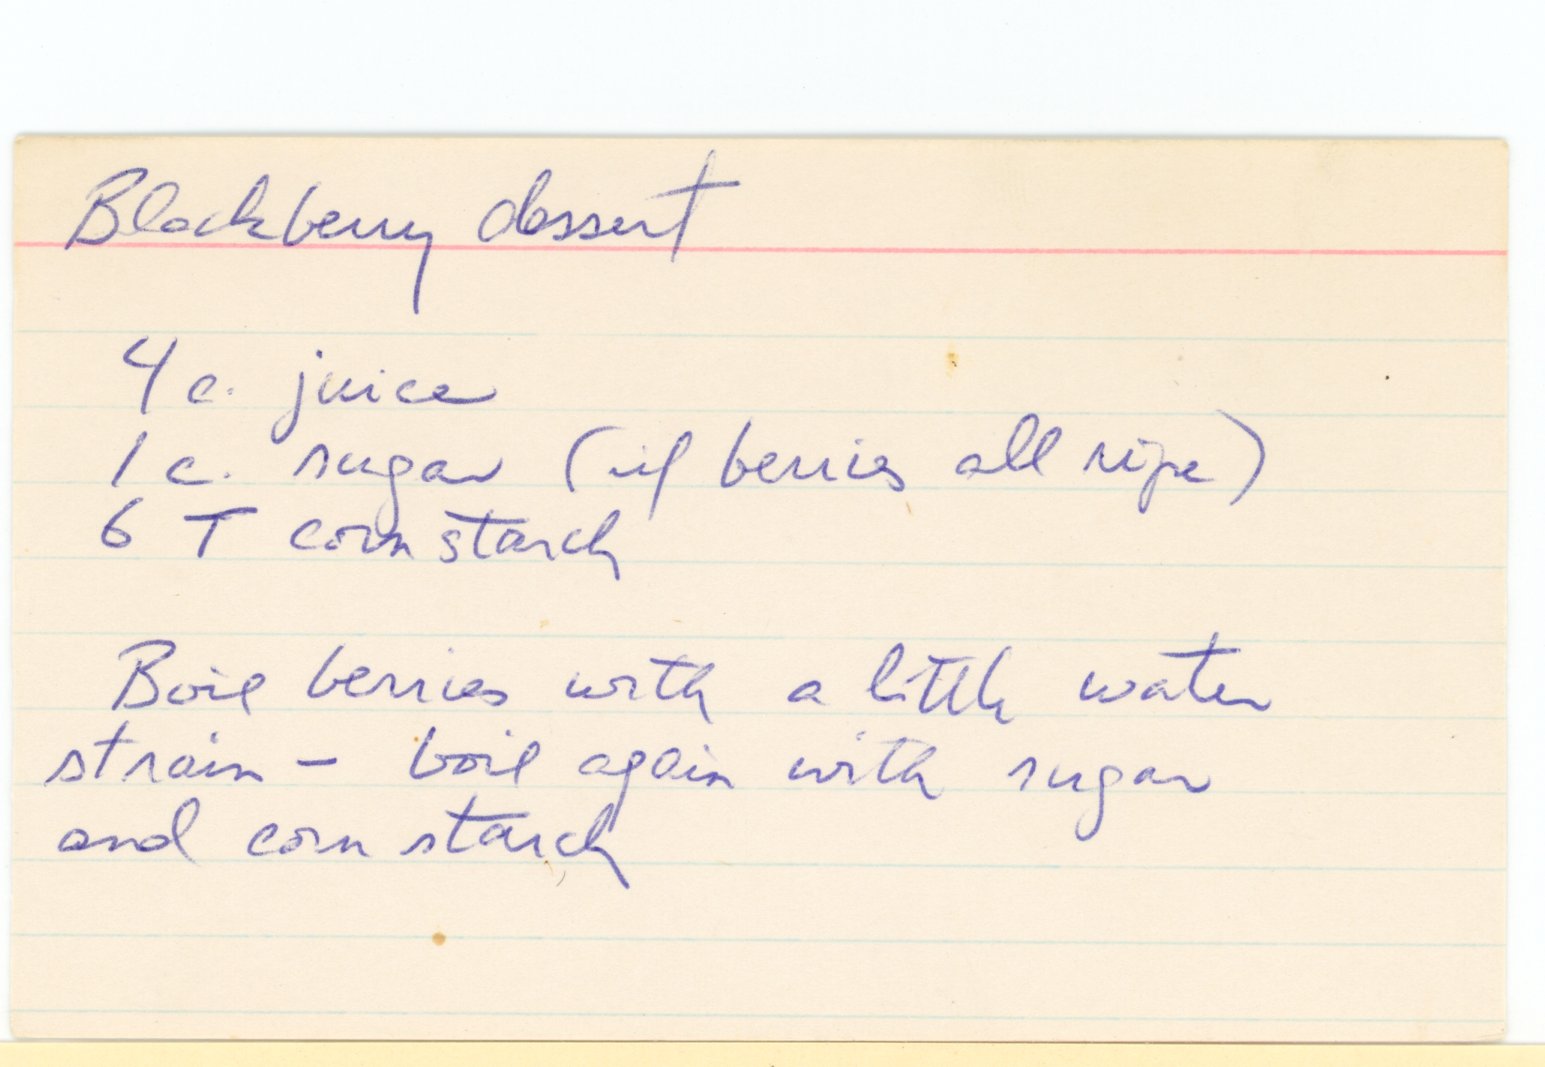 Blackberry dessert
4 c. juice
1 c. sugar (if berries all ripe)
6 T corn starch
Boil berries with a little water
strain - boil again with sugar
and corn starch